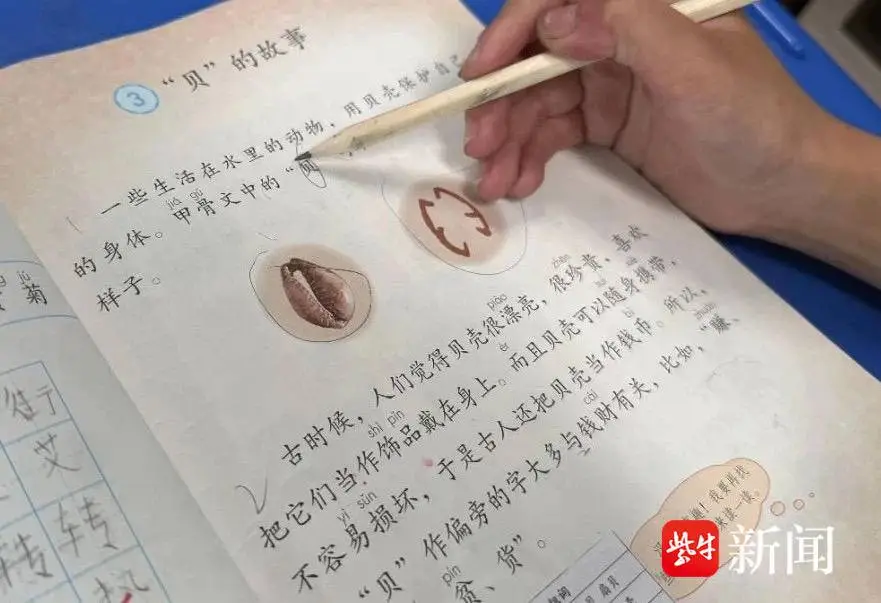 3 "贝"的故事
一些生活在水里的动物，用贝壳保护自己
jiǎ gǔ
的身体。甲骨文中的"贝
样子。
piào zhēn
古时候，人们觉得贝壳很漂亮，很珍贵，喜欢
shì pǐn ér suí xié
把它们当作饰品戴在身上。而且贝壳可以随身携带，
yì sǔn bì zhuàn
不容易损坏，于是古人还把贝壳当作钱币。所以，
cái
"贝"作偏旁的字大多与钱财有关，比如，"赚、
pín
贫、货"。
菊
艾
转 转
趣！我要再找
来读一读。
紫牛新闻